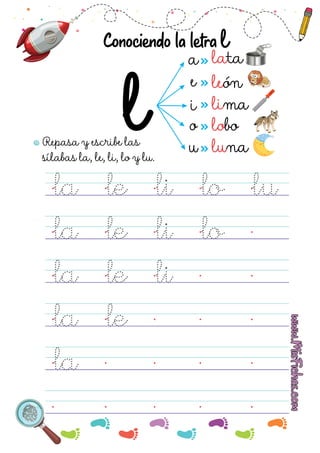 Conociendo la letra l
l
a » lata
e » león
i » lima
o » lobo
u » luna
Repasa y escribe las
sílabas la, le, li, lo y lu.
la le li lo lu
la le li lo .
la le li . .
la le . . .
la . . . .
. . . . .
www.MisFichas.com